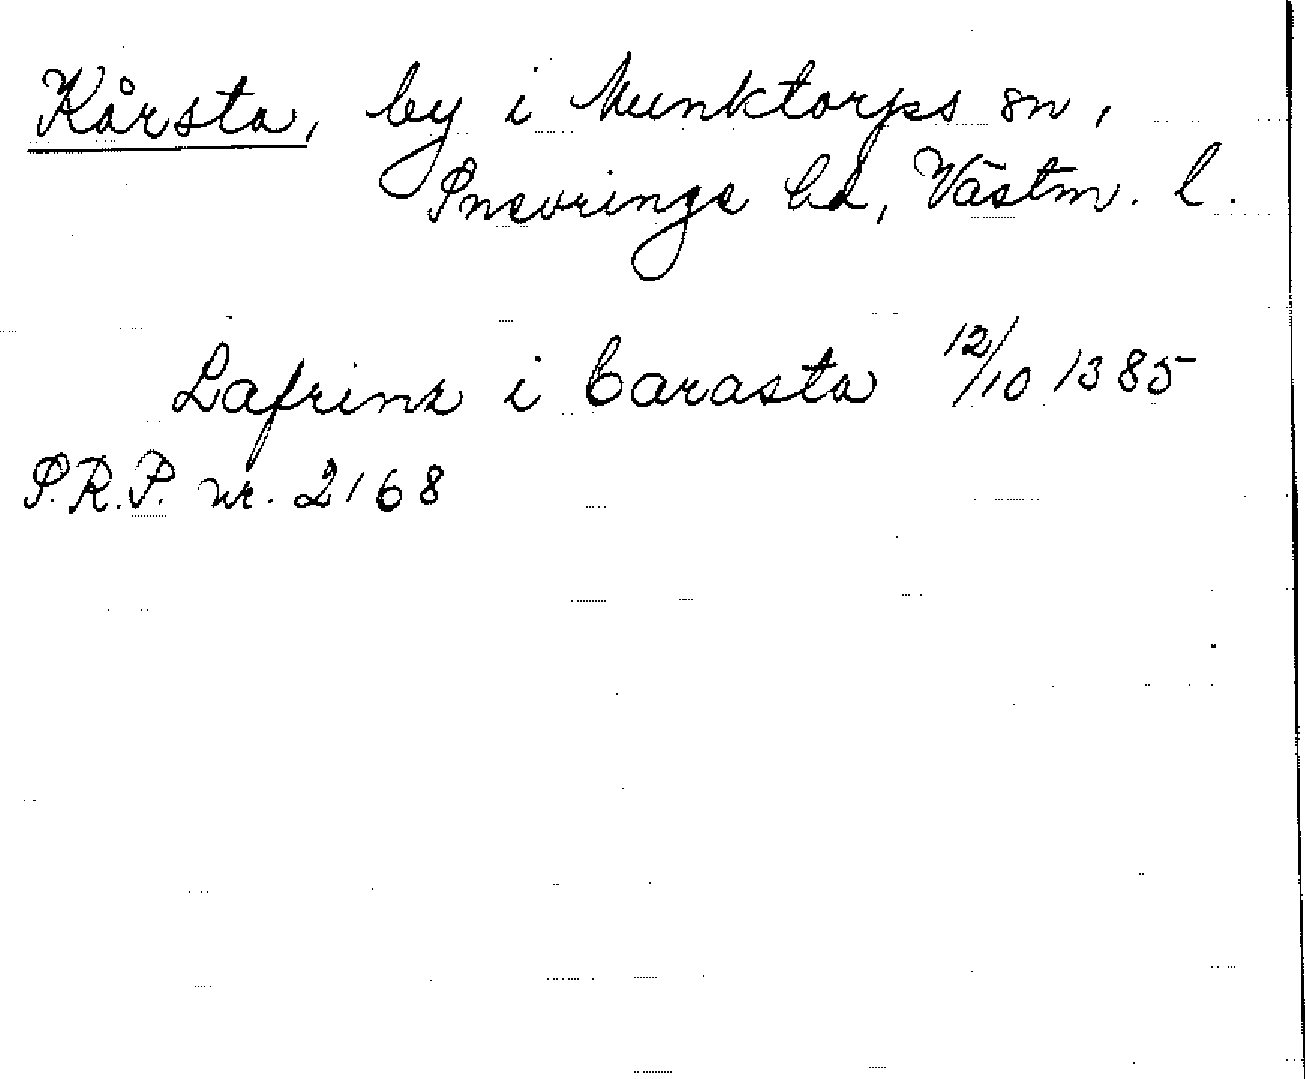 Kårsta, by i Munktorps sn,
Snevringe hd, Västm. l.
Lafrinz i Carasta 12/10 1385
S.R.P. nr. 2168